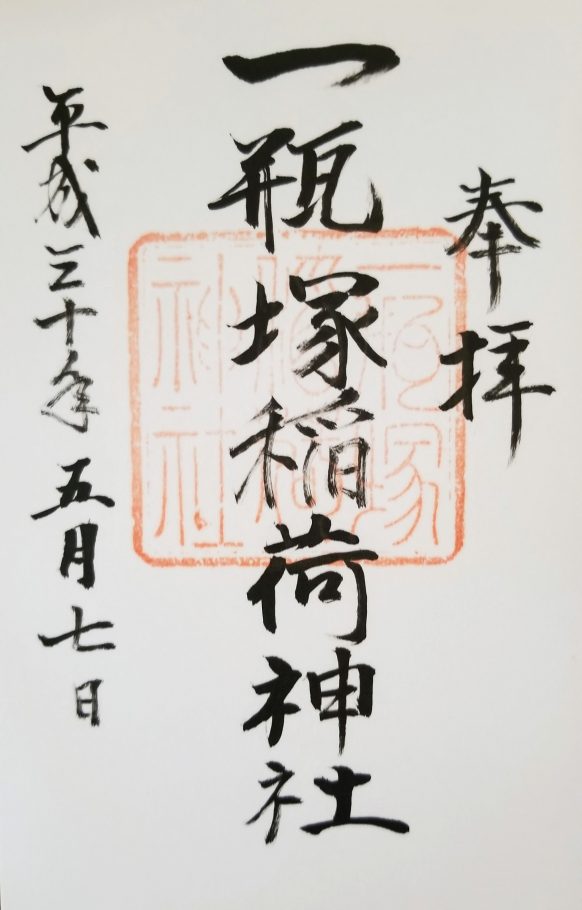 奉拝
一瓶塚稲荷神社
平成三十年五月七日
一瓶塚
稲荷
神社